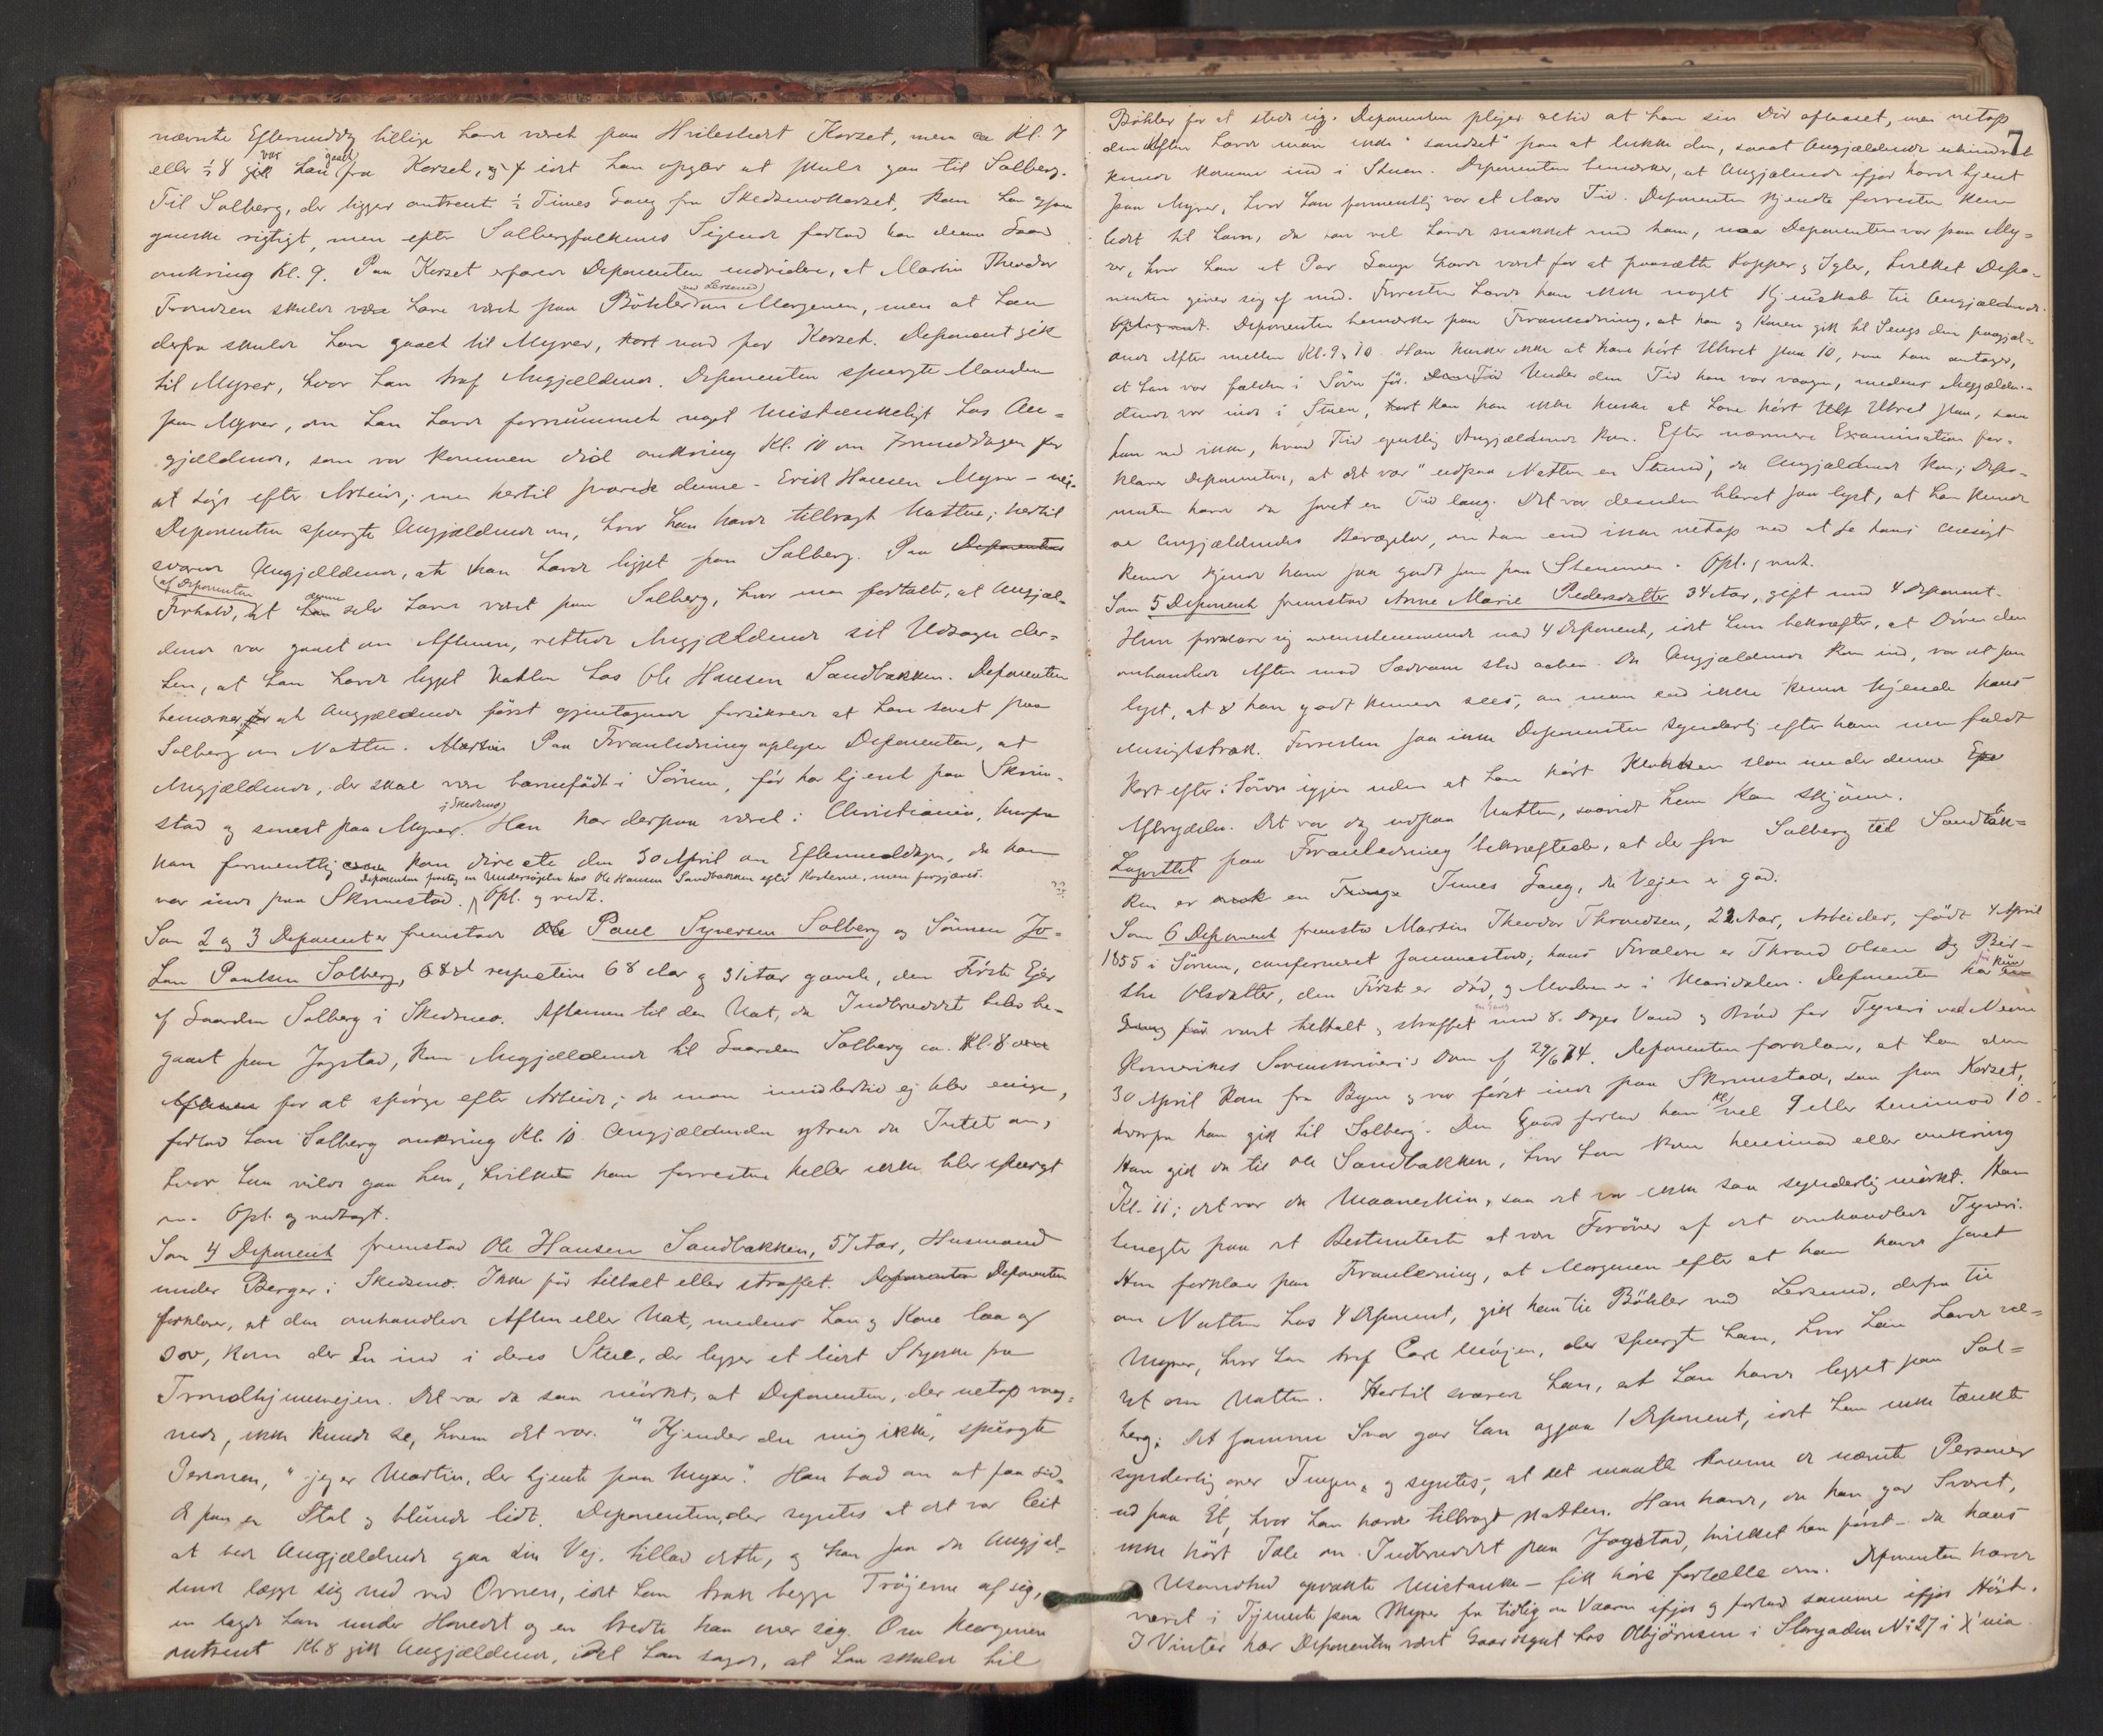 nævnte Eftermiddag tillige havde været paa Hvilestedet Korset, men ca Kl. 7
eller ½8 gik var han gaaet fra Korset, idet han opgav at skulle gaa til Solberg.
Til Solberg, der ligger omtrent ½ Times Gang fra Skedsmokorset, kom han ogsaa
ganske rigtigt, men efter Solbergfolkenes Sigende forlod han denne Gaard
omkring Kl. 9. Paa Korset erfarede Deponenten endvidere, at Martin Theodor
Trondsen skulde være have været paa Böhler ved Lersund om Morgenen, men at han
derfra skulde have gaaet til Myrer, kort nord for Korset. Deponent gik
til Myrer, hvor han traf Angjældende. Deponenten spurgte Manden
paa Myrer, om han havde fornummet noget mistænkeligt hos An-
gjældende, som var kommen did omkring Kl. 10 om Formiddagen for
at söge efter Arbeide; men hertil svarede denne - Erick Hansen Myrer - nei.
Deponenten spurgte Angjældende om, hvor han havde tilbragt Natten; hertil
svarede Angjældende, at han havde ligget paa Solberg. Paa Deponentens
af Deponenten
Forhold, at han denne selv havde været paa Solberg, hvor man fortalte, at Angjæl-
dende var gaaet om Aftenen, rettede Angjældende sit Udsagn der-
hen, at han havde ligget Natten hos Ole Hansen Sandbakken. Deponenten
bemærker, at Angjældende först gjentagende forsikrede at have sovet paa
Solberg om Natten. Paa Foranledning oplyser Deponenten, at
Angjældende, der skal være barnefödt i Sörum, för har tjent paa Skrim-
stad og senest paa Myrer i Skedsmo. Han har derpaa været i Christiania, hvorfra
han formentlig kom directe den 30 April om Eftermiddagen, da han
Deponenten foretog en Undersögelse hos Ole Hansen Sandbakken efter Kosterne, men forgjæves.
var inde paa Skrimstad. Opl. og vedt.
Som 2 og 3 Deponenter fremstod Ole Paul Syversen Solberg og Sönnen Jo-
han Paulsen Solberg, respective 68 Aar og 31 Aar gamle, den Förste Eier
af Gaarden Solberg i Skedsmo. Aftenen til den Nat, da Indbruddet blev be-
gaaet paa Jogstad, kom Angjældende til Gaarden Solberg ca. Kl. 8
Aftenen for at spörge efter Arbeide; da man imidlertid ej blev enige,
forlod han Solberg omkring Kl. 10. Angjældende ytrede da Intet om,
hvor han vilde gaa hen, hvilket han forresten heller ikke blev spurgt
om. Opl. og vedtaget.
Som 4 Deponent fremstod Ole Hansen Sandbakken, 57 Aar, Husmand
under Berger i Skedsmo. Ikke för tiltalt eller straffet. Deponenten Deponenten
forklarer, at den omhandlede Aften eller Nat, medens han og Kone laa og
sov, kom der En ind i deres Stue, der ligger et lidet Stykke fra
Trondhjemsvejen. Det var da saa mörkt, at Deponenten, der netop vaag-
nede, ikke kunde se, hvem det var. "Kjender du mig ikke", spurgte
Personen, "jeg er Martin, der tjente paa Myrer". Han bad om at faa sid-
de paa en Stol og blunde lidt. Deponenten, der syntes at det var leit
at bede Angjældende gaa sin Vej, tillod dette, og han saa da Angjæl-
dende lægge sig ned ved Ovnen, idet han trak begge Tröjerne af sig,
en lagde han under Hovedet og en bredte han over sig. Om Morgenen
omtrent Kl. 8 gik Angjældende, idet han sagde, at han skulde til
7
Böhler for at stede sig. Deponenten plejer altid at have sin Dör aflaaset, men netop
den Aften havde man ikke "sandset" paa at lukke den, saaat Angjældende uhindret
kunde komme ind i Stuen. Deponenten bemærker, at Angjældende ifjor havde tjent
paa Myrer, hvor han formentlig var et Aars Tid. Deponenten kjendte forresten kun
lidet til ham, da han vel havde snakket med ham, naar Deponenten var paa My-
rer, hvor han et Par Gange havde været for at paasætte Kopper og Igler, hvilket Depo-
nenten giver sig af med. Forresten havde han ikke noget Kjendskab til Angjældende.
Deponenten bemærker paa Foranledning, at han og Konen gik til Sengs den paagjæl-
dende Aften mellem Kl. 9 og 10. Han husker ikke at have hört Uhret slaa 10, men han antager,
at han var falden i Sövn för. Under den Tid han var vaagen, medens Angjæl-
dende var inde i Stuen, kan han ikke huske at have hört Uhret slaa, saa
han ved ikke, hvad Tid egentlig Angjældende kom. Efter nærmere Examination for-
klarer Deponenten, at det var "udpaa Natten en Stund", da Angjældende kom; Depo-
nenten havde da sovet en Tid lang. Det var desuden blevet saa lyst, at han kunde
se Angjældendes Bevægelser, om han end ikke netop ved at se hans Ansigt
kunde kjende ham saa godt som paa Stemmen. Opl. og vedt.
Som 5 Deponent fremstod Anne Marie Pedersdatter 34 Aar, gift med 4 Deponent.
Hun forklarer sig overensstemmende med 4 Deponent, idet hun bekræfter, at Dören den
omhandlede Aften mod Sædvane stod aaben. Da Angjældende kom ind, var det saa
lyst, at han godt kunde sees, om man end ikke kunde kjende hans
Ansigtstræk. Forresten saa ikke Deponenten synderlig efter ham men faldt
kort efter i Sövn igjen uden at have hört Klokken slaa under denne
Afbrydelse. Det var dog udpaa Natten, saavidt hun kan skjönne.
Lagrettet paa Foranledning bekræftede, at der fra Solberg til Sandbak-
ken er en Times Gang, da Vejen er god.
Som 6 Deponent fremstod Martin Theodor Throndsen, 22 Aar, Arbeider, födt 4 April
1855 i Sörum, confirmeret sammesteds; hans Forældre er Thrond Olsen og Ber-
the Olsdatter, den Förste er död, og Moderen er i Maridalen. Deponenten har kun
en Gang för været tiltalt og straffet med 8 Dages Vand og Bröd for Tyveri ved Nedre
Romerikes Sorenskriveris Dom af 29/6 74. Deponenten forklarer, at han den
30 April kom fra Byen og var först inde paa Skrimstad, saa paa Korset,
hvorfra han gik til Solberg. Den Gaard forlod han Kl vel 9 eller henimod 10.
Han gik da til Ole Sandbakken, hvor han kom henimod eller omkring
Kl. 11; det var da Maaneskin, saa det var ikke saa synderlig mörkt. Han
benegter paa det Bestemteste at være Foröver af det omhandlede Tyveri.
Han forklarer paa Foranledning, at Morgenen efter at han havde sovet
om Natten hos 4 Deponent, gik han til Böhler ved Lersund, derfra til
Myrer, hvor han traf Carl Möjen, der spurgte ham, hvor han havde væ-
ret om Natten. Hertil svarede han, at han havde ligget paa Sol-
berg; det samme Svar gav han ogsaa 1 Deponent, idet han ikke tænkte
synderlig over Tingen, og syntes, at det maatte komme de nævnte Personer
ud paa Et, hvor han havde tilbragt Natten. Han havde, da han gav Svaret,
ikke hört Tale om Indbruddet paa Jogstad, hvilket han först - da hans
Usandhed opvakte Mistanke - fik höre fortælle om. Deponenten havde
været i Tjeneste paa Myrer fra tidlig om Vaaren ifjor og forlod samme ifjor Höst.
I Vinter har Deponenten været Gaardsgut hos Asbjörnsen i Storgaden No 27 i Xnia